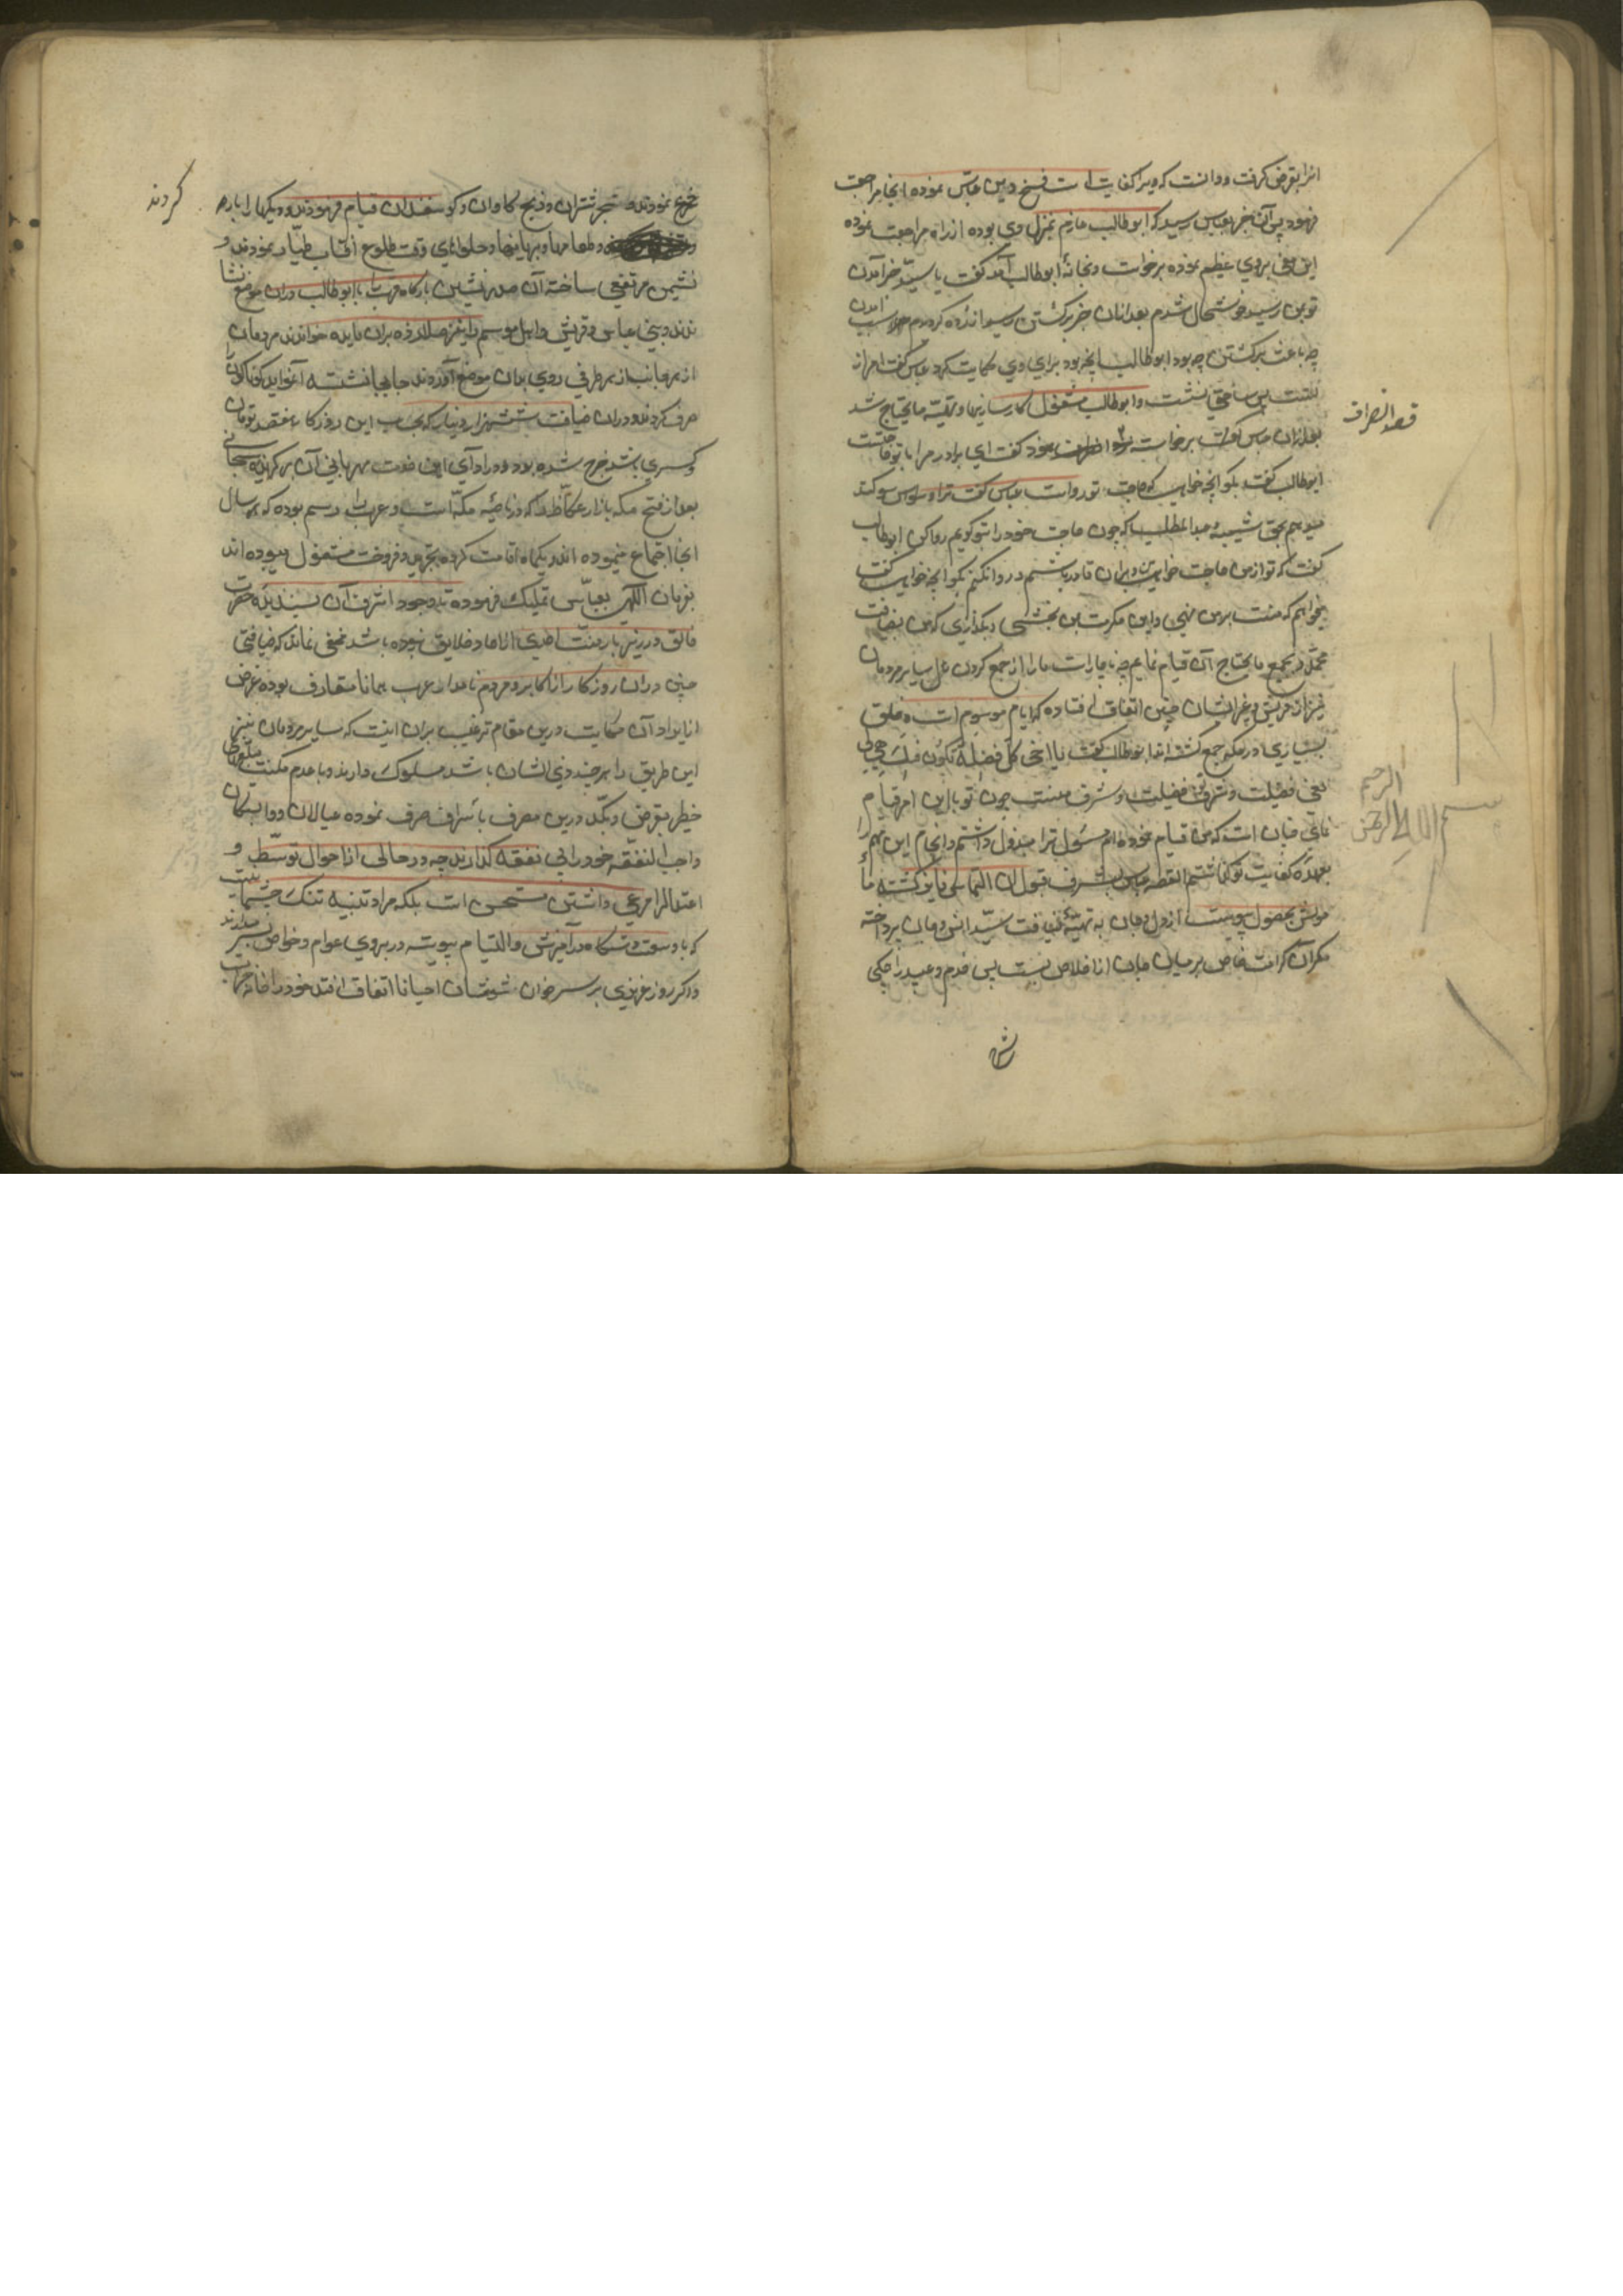 انرا بقرض گرفت و دانست که ویرا کفایت است فسخ دین عباس نموده انجا مراجعت
فرمود پس آن خبر بعباس رسید که ابوطالب عازم بمنزل وی بوده از راه مراجعت نموده
این معنی بروی عظیم نموده برخواست و بخانهٔ ابوطالب آمد گفت یا سید خبر آمدن
تو بمن رسید خوشحال شدم بعد ازان خبر برگشتن رسید اندوه کردم سبب آمدن
چه باعث برگشتن چه بود ابوطالب انچه بود برای وی حکایت کرد عباس گفت امر از
تست پس ساعتی نشست و ابوطالب مشغول کارسازیها و تهیّه مایحتاج شد
بعد ازان عباس برخواست گفت ای برادر مرا با تو حاجتست
ابوطالب گفت بگو انچه خواهی که حاجت تو رواست عباس گفت ترا سوگند
میدهم بحق شیبه عبدالمطلب که چون حاجت خود را بتو گویم روا کن ابوطالب
گفت که تو از من حاجت خواهی و بران قادر باشم و روا نکنم بگو انچه خواهی گفت
میخواهم که منت بر من نهی و این مکرمت بمن بخشی و بگذاری که من بضیافت
بجمیع مایحتاج آن قیام نمایم چه ناچارست ما را از جمع کردن سایر مردمان
نیز از قریش و غیر ایشان چنین اتفاق افتاده که ایام موسوم است و خلق
بسیاری در مکه جمع گشته اند ابوطالب گفت یا اخی کل فضلة تکون فیک فهی لی
یعنی فضیلت و شرف تو فضیلت و شرف منست چون تو باین امر قیام
نمائی چنان است که من قیام نموده ام مسئول ترا مبذول داشتم و انجام این مهم را
بعهدهٔ کفایت تو گذاشتم القصه عباس بشرف قبول ان التماس فایز گشته
بحصول پیوست از دل و جان به تهیّهٔ ضیافت سیّد انس و جان پرداخته
کمر آن کرامت خاص بر میان جان از اخلاص ببست پس خدم و عبید را چکی
ش
قصد انصراف
بسم الله الرحمن الرحیم
خرج نمودند و نحر شتران و ذبح گاوان و گوسفندان قیام فرمودند و دیگها را باره
کردند
و طعامها و بریانیها و حلواهای وقت طلوع افتاب طیّار نمودند و
نشیمن مرتفعی ساخته آن صدرنشین بارگاه قربت با ابوطالب دران موضع بنشا
ندند و بنی عباس و قریش و اهل موسم را نیز صلا زده بران مایده خواندند مردمان
از هر جانب از هر طرفی روی بدان موضع آوردند جابجا نشسته آنواید گوناگون
صرف کردند و دران ضیافت شش هزار دینار که بحساب این روزگار هفتصد تومان
و کسری باشد خرج شده بود و در ادای این خدمت مهربانی آن برگزیده سبحانی
بعد از فتح مکه بازار عکاظ را که در ناحیهٔ مکّه است و عرب را رسم بوده که هر سال
انجا اجتماع مینموده اند و یکماه اقامت کرده بخرید و فروخت مشغول میبوده اند
بفرمان الهی بعبّاس تملیک فرموده تا وجود اشرف آن پسندیدهٔ حضرت
خالق در زیر بار منّت احدی از احاد خلایق نبوده باشد مخفی نماند که ضیافتی
چنین دران روزگار از اکابر و مردم نامدار عرب همانا متعارف بوده غرض
از ایراد آن حکایت درین مقام ترغیب بران اینست که سایر مردمان نیز
این طریق را هر چند دون ایشان باشد مسلوک دارند و با عدم مکنت مبلغهای
خطیر بقرض و تکد درین مصرف باسراف صرف نموده عیالان و وابستگان
واجب النفقه خود را بی نفقه گذارند چه در حالی از احوال توسّط و
اعتدال را مرعی داشتن مستحسن است بلکه مراد تنبیه تنک چشمانیست
که با وسعت دستگاه در آمیزش و التیام پیوسته در بروی عوام و خواص میدارند
و اگر روز عزیزی بر سر خوان شومشان احیانا اتفاق افتد خود را خانه خراب